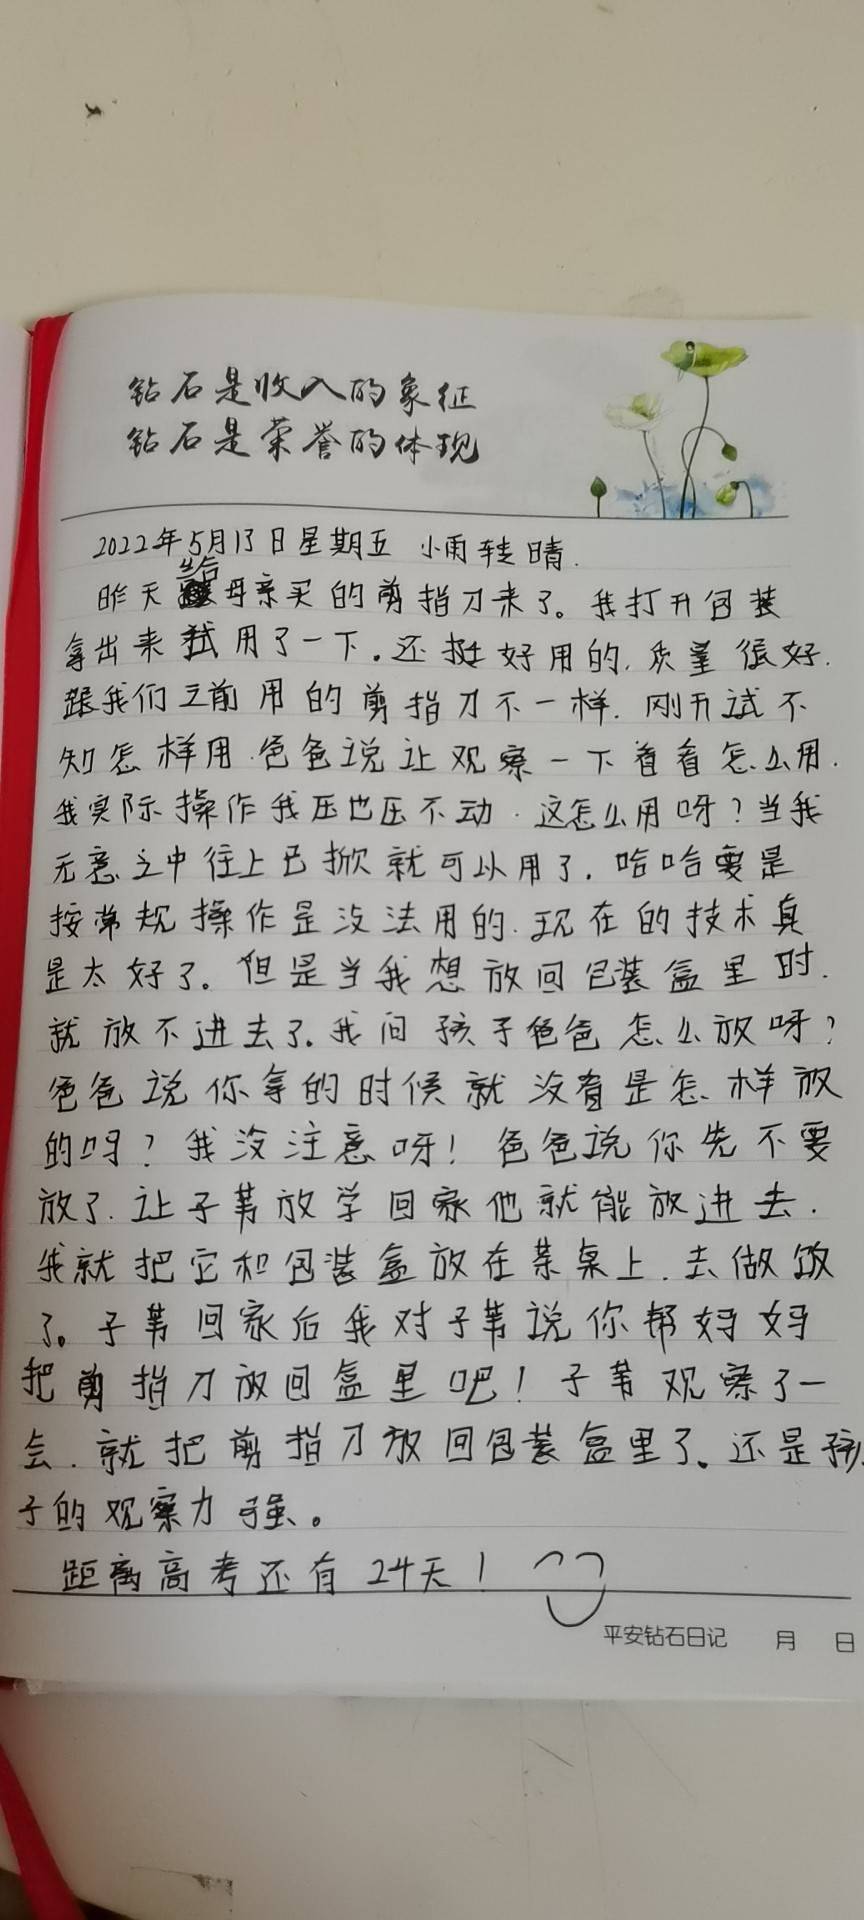 钻石是收入的象征
钻石是荣誉的体现
2022年5月13日星期五 小雨转晴.
昨天给母亲买的剪指刀来了。我打开包装
拿出来试用了一下。还挺好用的,质量很好.
跟我们之前用的剪指刀不一样.刚开试不
知怎样用.爸爸说让观察一下看看怎么用.
我实际操作我压也压不动.这怎么用呀?当我
无意之中往上已掀就可以用了.哈哈要是
按常规操作是没法用的.现在的技术真
是太好了。但是当我想放回包装盒里时.
就放不进去了.我问孩子爸爸怎么放呀?
爸爸说你拿的时候就没看是怎样放
的吗?我没注意呀!爸爸说你先不要
放了.让子苇放学回家他就能放进去.
我就把它和包装盒放在茶桌上.去做饭
了。子苇回家后我对子苇说你帮妈妈
把剪指刀放回盒里吧!子苇观察了一
会.就把剪指刀放回包装盒里了。还是孩
子的观察力强。
距离高考还有24天!
平安钻石日记 月 日